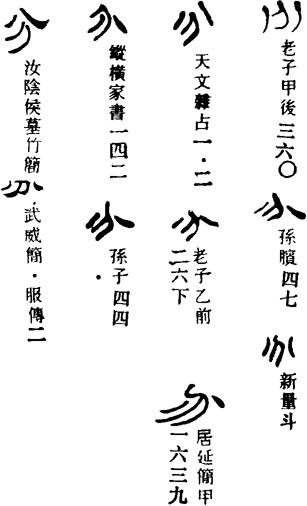 老子甲後三六〇
孫臏四七
新量斗
天文雜占一·二
老子乙前
二六下
居延簡甲
一六三九
縱橫家書一四二
孫子四四
汝陰侯墓竹簡
武威簡·服傳二